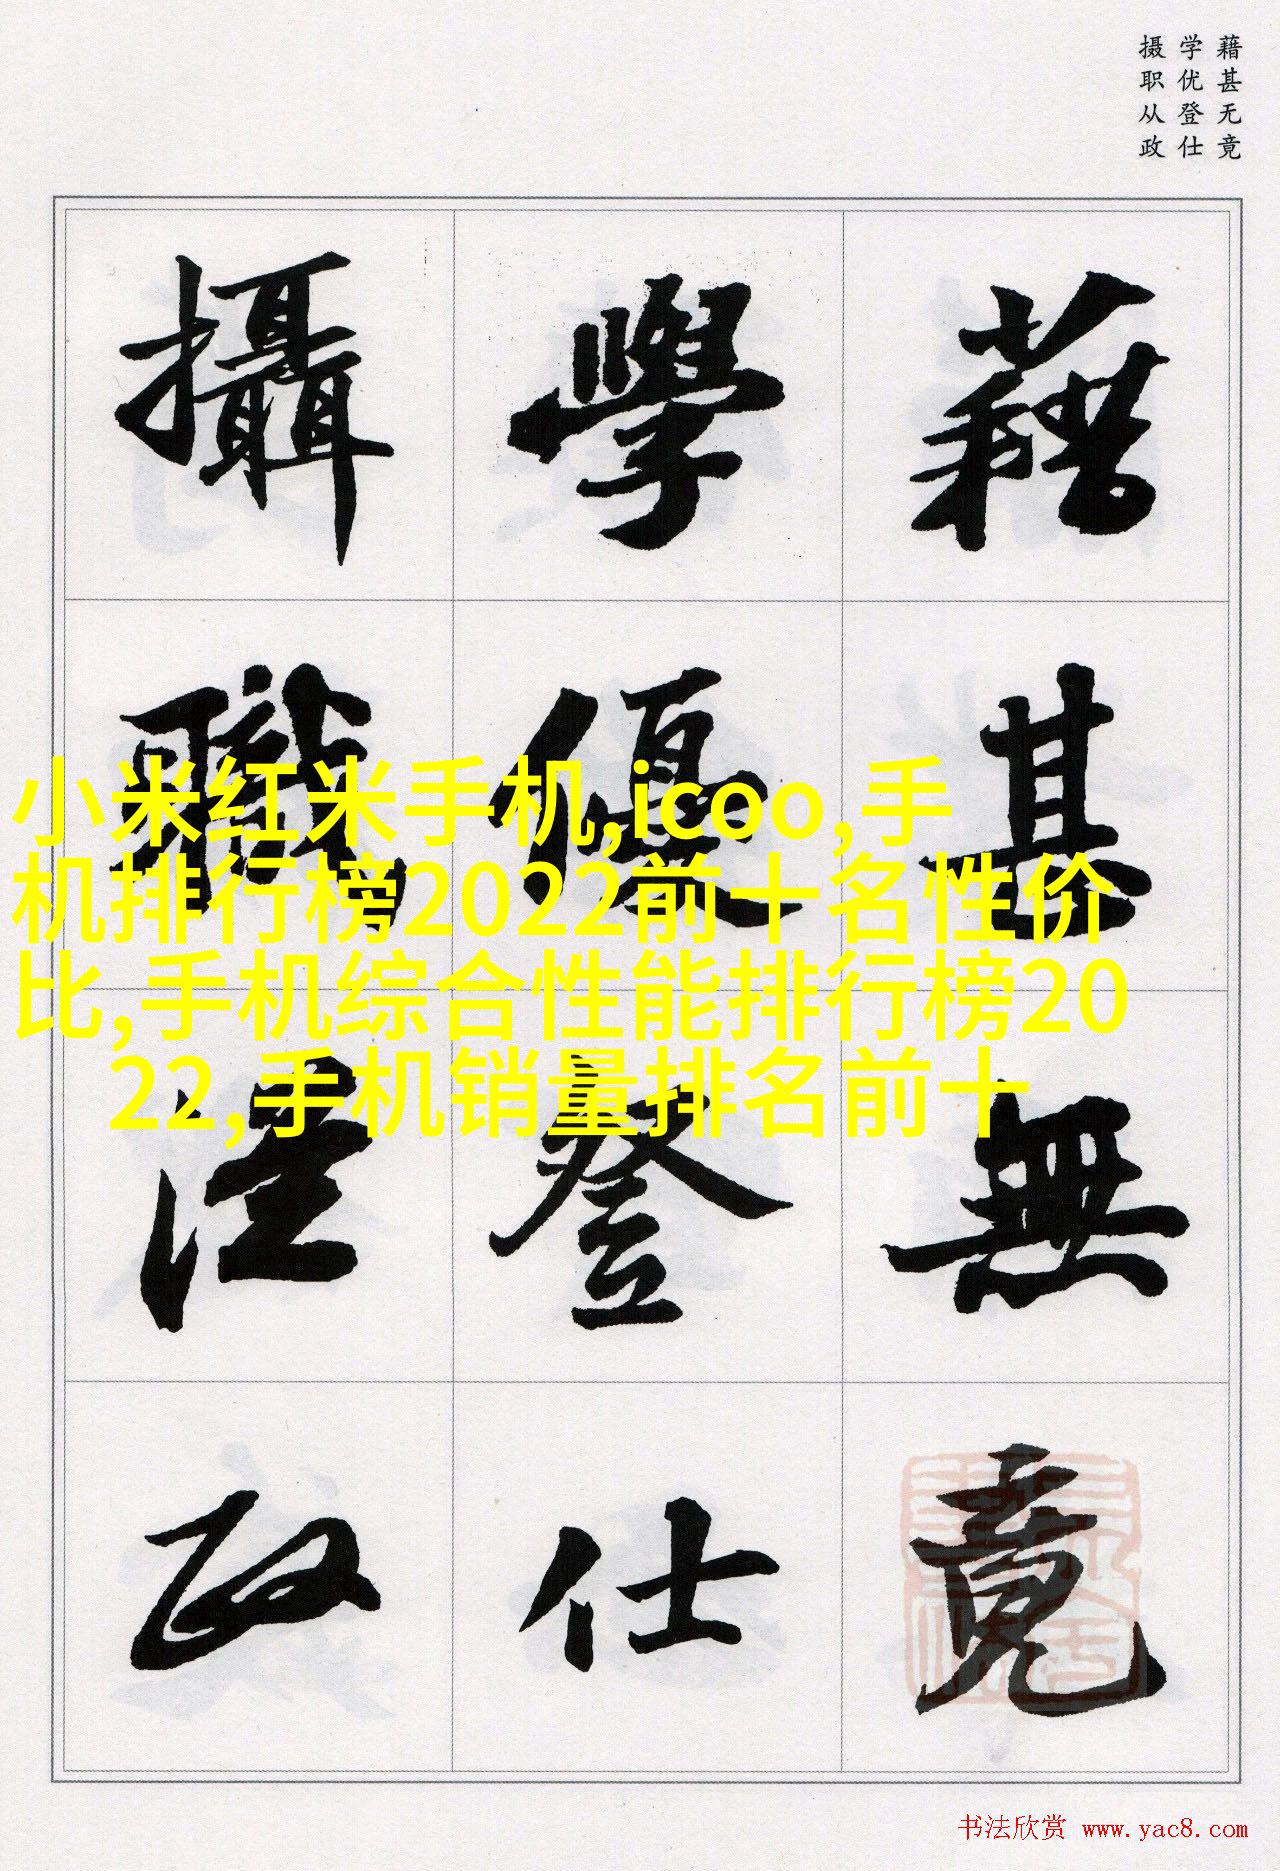 藉甚无竟
学优登仕
摄职从政
藉甚無竟
學優登仕
攝職從政
小米红米手机,icoo,手
机排行榜2022前十名性价
比,手机综合性能排行榜20
22,手机销量排名前十
书法欣赏 www.yac8.com